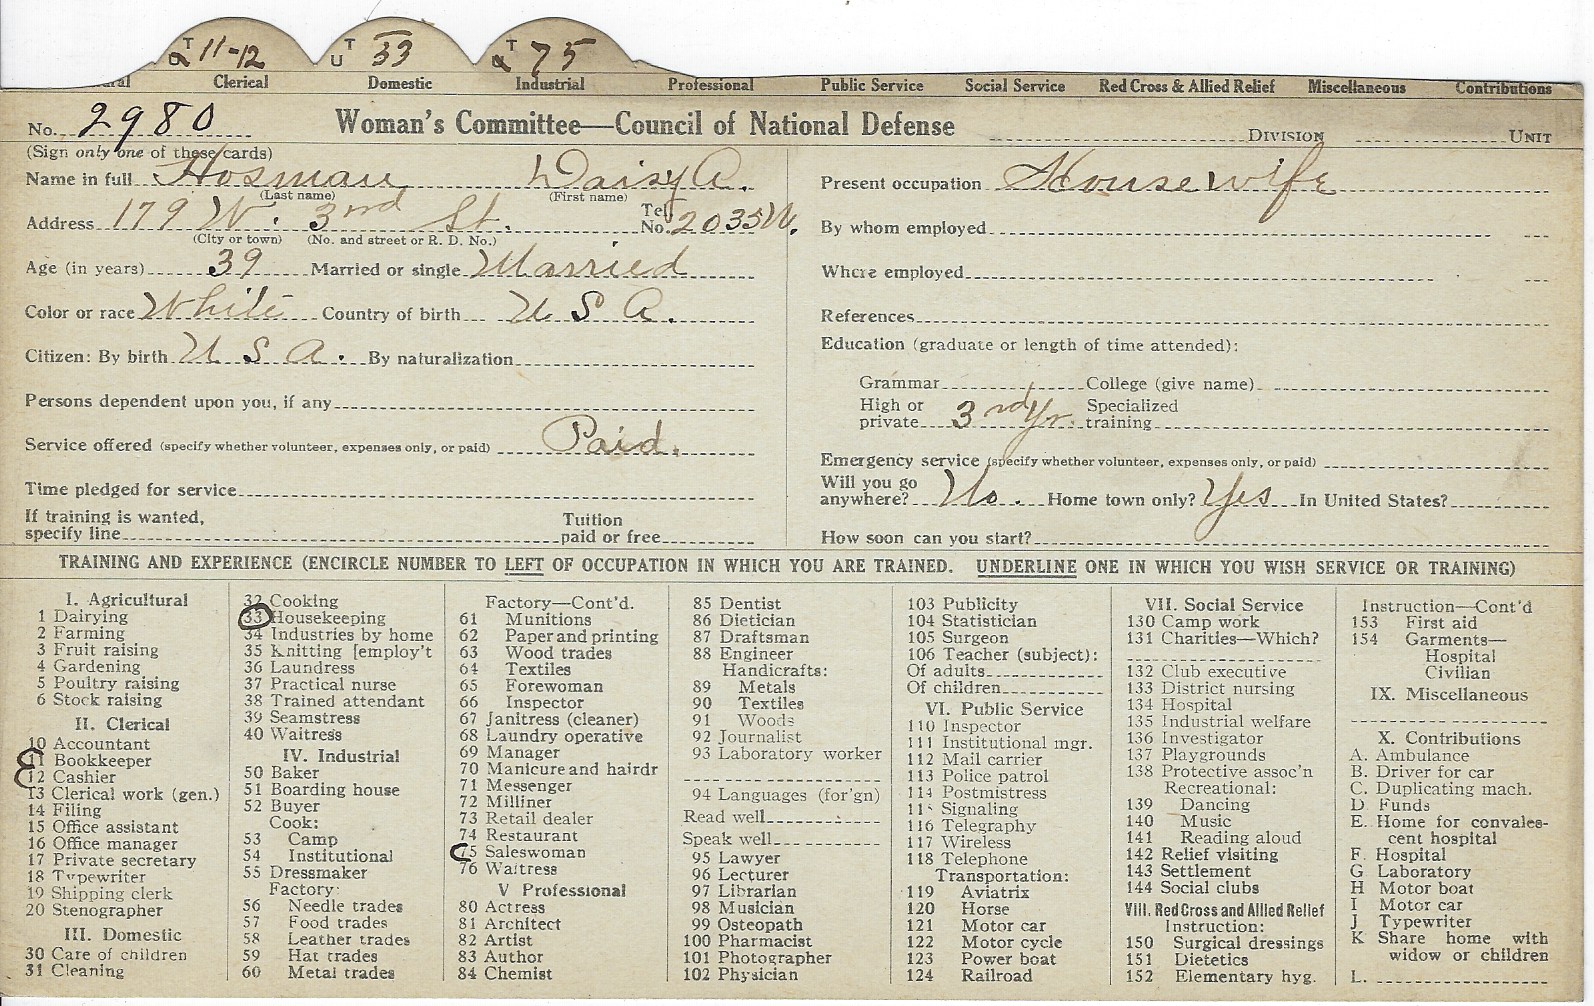 T 11-12 UT 33 T 75
ral Clerical Domestic Industrial Professional Public Service Social Service Red Cross & Allied Relief Miscellaneous Contributions
No. 2980 Woman's Committee—Council of National Defense DIVISION UNIT
(Sign only one of these cards)
Name in full Hosman Daisy A.
(Last name) (First name)
Address 179 W. 3rd St. Tel. No. 2035W.
(City or town) (No. and street or R. D. No.)
Age (in years) 39 Married or single Married
Color or race White Country of birth U S A.
Citizen: By birth U S A. By naturalization
Persons dependent upon you, if any
Service offered (specify whether volunteer, expenses only, or paid) Paid.
Time pledged for service
If training is wanted,
specify line
Tuition
paid or free
Present occupation Housewife
By whom employed
Where employed
References
Education (graduate or length of time attended):
Grammar College (give name)
High or private 3rd Yr. Specialized training
Emergency service (specify whether volunteer, expenses only, or paid)
Will you go anywhere? No. Home town only? Yes In United States?
How soon can you start?
TRAINING AND EXPERIENCE (ENCIRCLE NUMBER TO LEFT OF OCCUPATION IN WHICH YOU ARE TRAINED. UNDERLINE ONE IN WHICH YOU WISH SERVICE OR TRAINING)
I. Agricultural
1 Dairying
2 Farming
3 Fruit raising
4 Gardening
5 Poultry raising
6 Stock raising
II. Clerical
10 Accountant
11 Bookkeeper
12 Cashier
13 Clerical work (gen.)
14 Filing
15 Office assistant
16 Office manager
17 Private secretary
18 Typewriter
19 Shipping clerk
20 Stenographer
III. Domestic
30 Care of children
31 Cleaning
32 Cooking
33 Housekeeping
34 Industries by home
35 Knitting [employ't
36 Laundress
37 Practical nurse
38 Trained attendant
39 Seamstress
40 Waitress
IV. Industrial
50 Baker
51 Boarding house
52 Buyer
Cook:
53 Camp
54 Institutional
55 Dressmaker
Factory:
56 Needle trades
57 Food trades
58 Leather trades
59 Hat trades
60 Metal trades
Factory—Cont'd.
61 Munitions
62 Paper and printing
63 Wood trades
64 Textiles
65 Forewoman
66 Inspector
67 Janitress (cleaner)
68 Laundry operative
69 Manager
70 Manicure and hairdr
71 Messenger
72 Milliner
73 Retail dealer
74 Restaurant
75 Saleswoman
76 Waitress
V Professional
80 Actress
81 Architect
82 Artist
83 Author
84 Chemist
85 Dentist
86 Dietician
87 Draftsman
88 Engineer
Handicrafts:
89 Metals
90 Textiles
91 Woods
92 Journalist
93 Laboratory worker
94 Languages (for'gn)
Read well
Speak well
95 Lawyer
96 Lecturer
97 Librarian
98 Musician
99 Osteopath
100 Pharmacist
101 Photographer
102 Physician
103 Publicity
104 Statistician
105 Surgeon
106 Teacher (subject):
Of adults
Of children
VI. Public Service
110 Inspector
111 Institutional mgr.
112 Mail carrier
113 Police patrol
114 Postmistress
115 Signaling
116 Telegraphy
117 Wireless
118 Telephone
Transportation:
119 Aviatrix
120 Horse
121 Motor car
122 Motor cycle
123 Power boat
124 Railroad
VII. Social Service
130 Camp work
131 Charities—Which?
132 Club executive
133 District nursing
134 Hospital
135 Industrial welfare
136 Investigator
137 Playgrounds
138 Protective assoc'n
Recreational:
139 Dancing
140 Music
141 Reading aloud
142 Relief visiting
143 Settlement
144 Social clubs
VIII. Red Cross and Allied Relief
Instruction:
150 Surgical dressings
151 Dietetics
152 Elementary hyg.
Instruction—Cont'd
153 First aid
154 Garments—
Hospital
Civilian
IX. Miscellaneous
X. Contributions
A. Ambulance
B. Driver for car
C. Duplicating mach.
D. Funds
E. Home for convales-
cent hospital
F. Hospital
G Laboratory
H Motor boat
I Motor car
J Typewriter
K Share home with
widow or children
L.